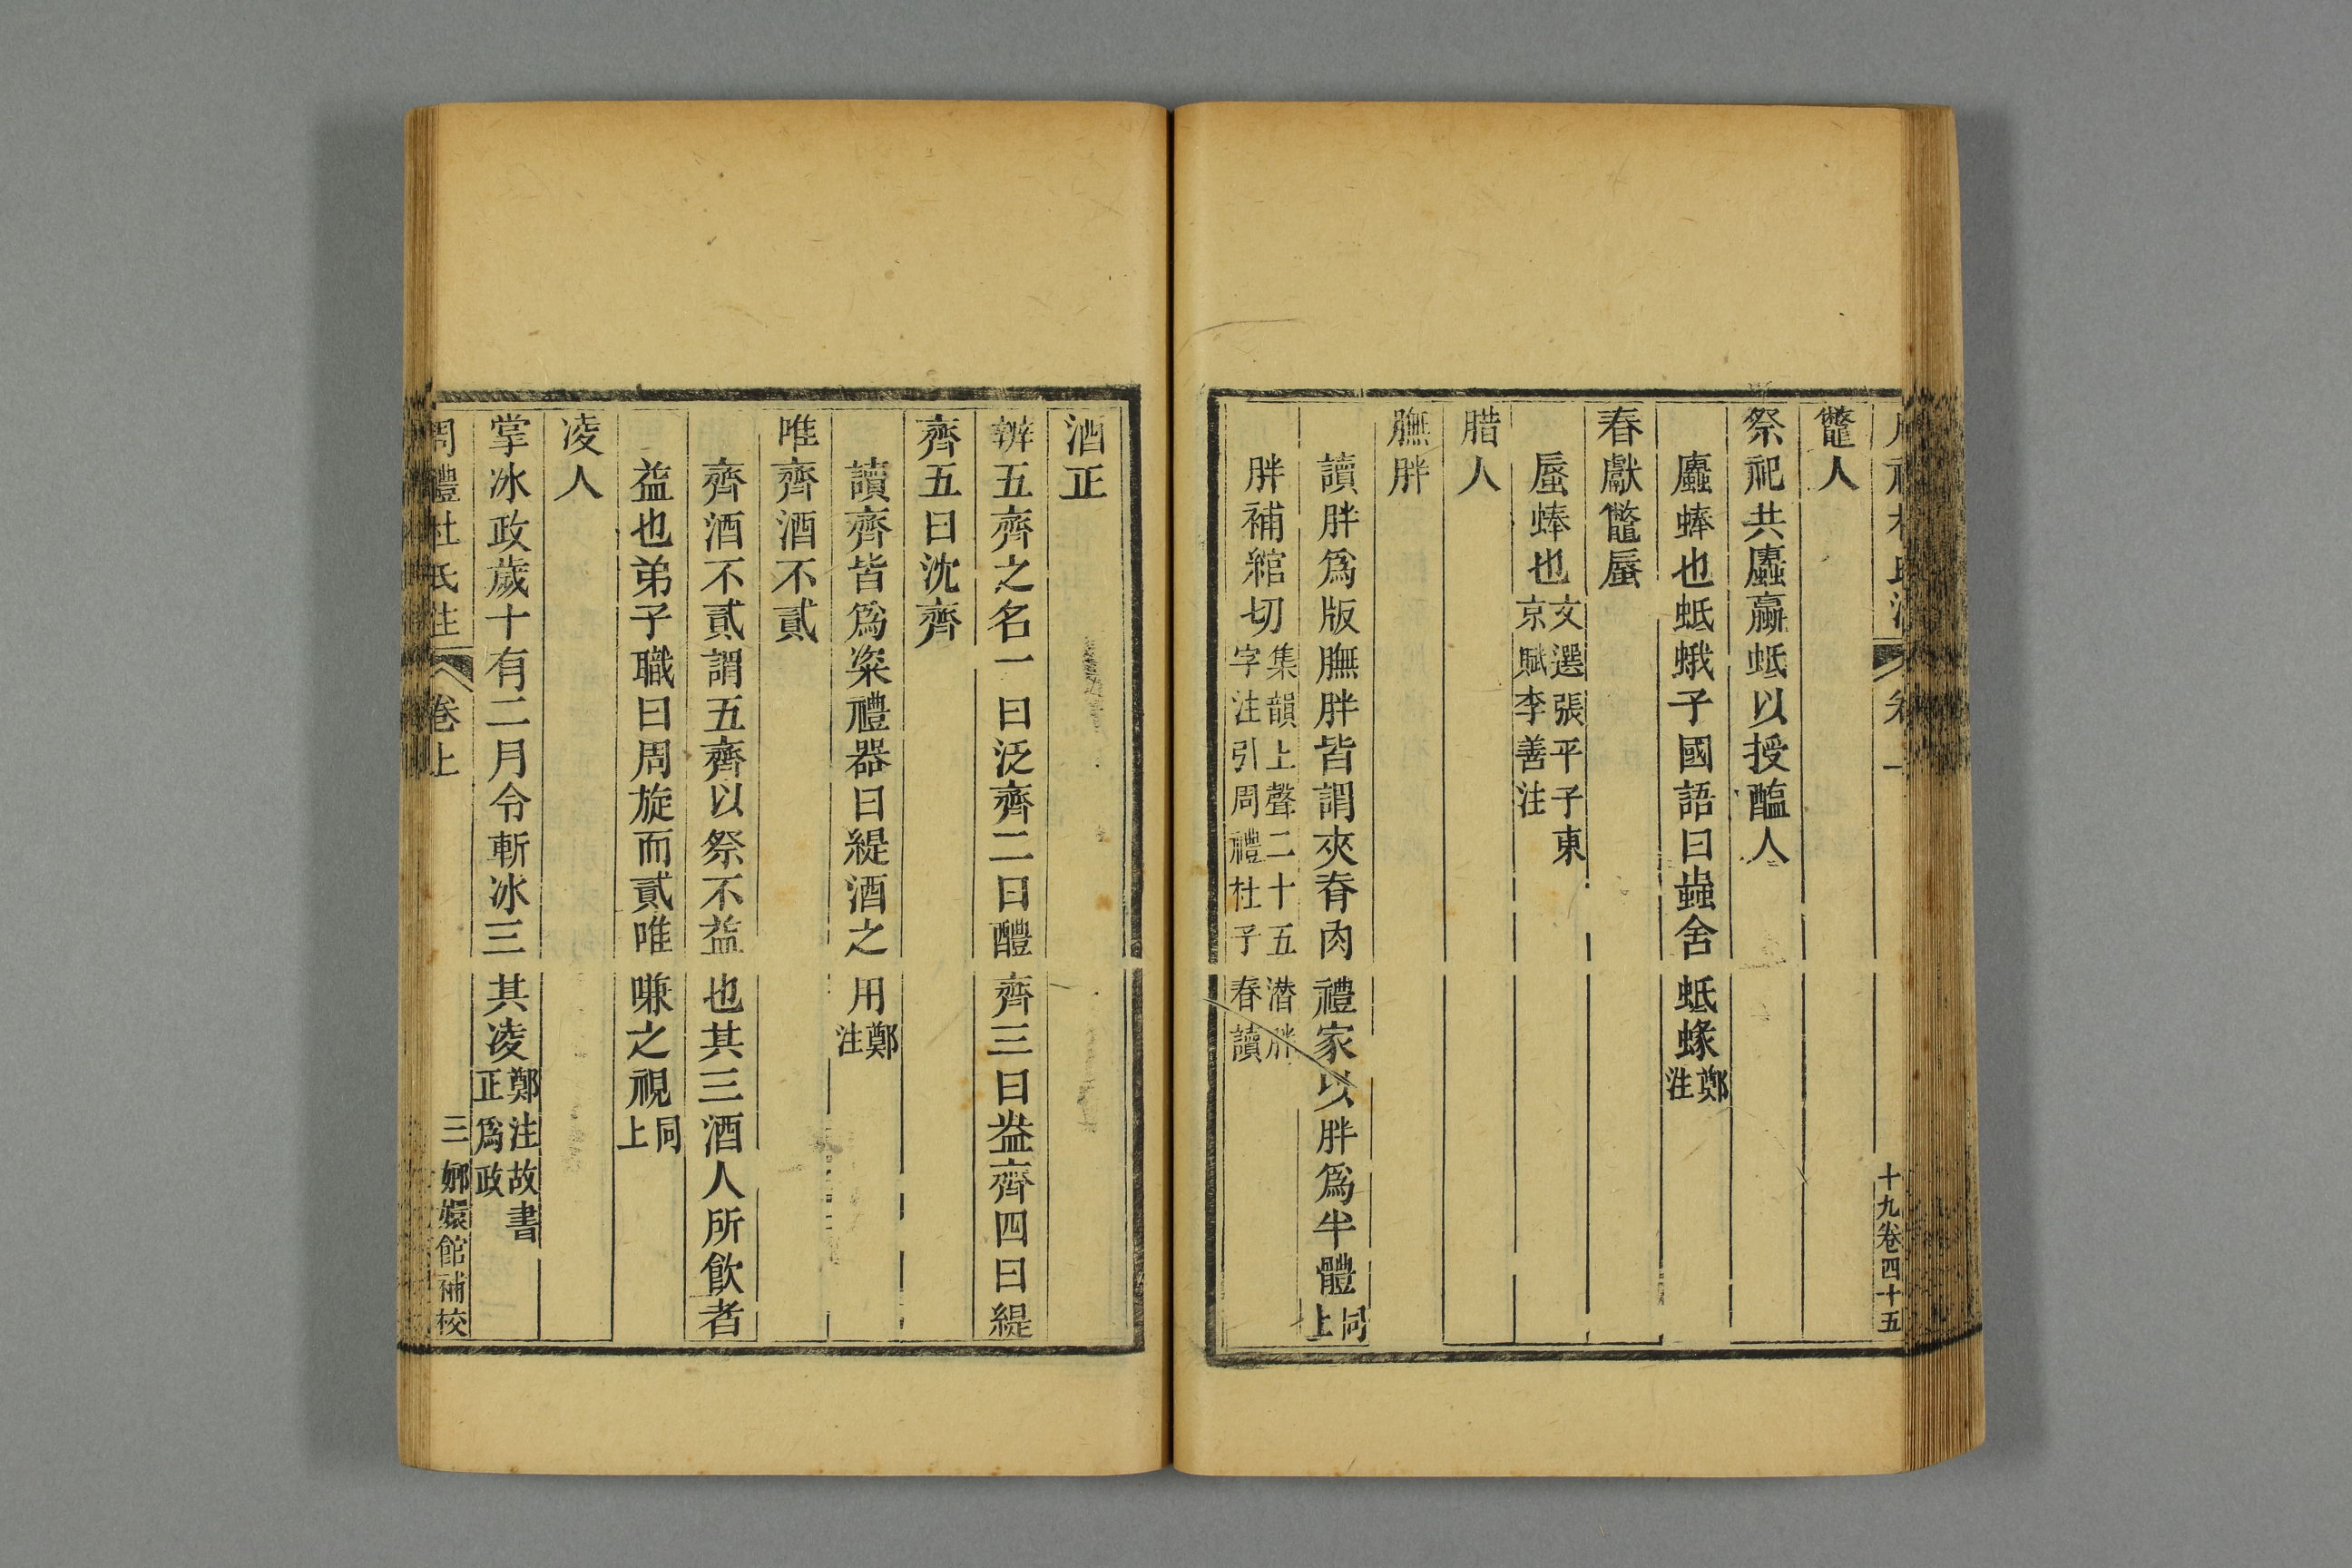 十九卷四十五
鼈人
祭祀共蠯蠃蚳以授醢人
蠯蜯也蚳蛾子國語曰蟲舍蚳蝝鄭注
春獻鼈蜃
蜃蜯也文選張平子東京賦李善注
腊人
膴胖
讀胖爲版膴胖皆謂夾脊肉禮家以胖爲半體同上
胖補綰切集韻上聲二十五潸胖字注引周禮杜子春讀
酒正
辨五齊之名一曰泛齊二曰醴齊三曰盎齊四曰緹
齊五曰沈齊
讀齊皆爲粢禮器曰緹酒之用鄭注
唯齊酒不貳
齊酒不貳謂五齊以祭不益也其三酒人所飲者
益也弟子職曰周旋而貳唯嗛之視同上
凌人
掌冰政歲十有二月令斬冰三其凌鄭注故書正爲政
周禮杜氏注 卷上 三 嫏嬛館補校